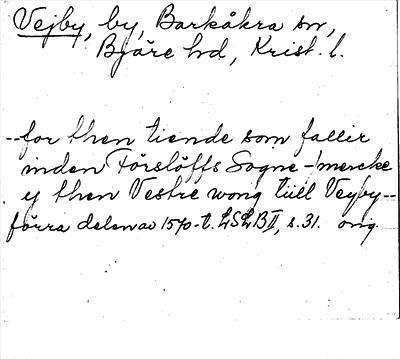 Vejby, by, Barkåkra sn,
Bjäre hd, Krist. l.
--for then tiende som fallir
inden Förslöffs Sogne-mercke
ij then Vestre wong tiill Veyby--
förra delen av 1570-t. LSLB II, s. 31. orig.